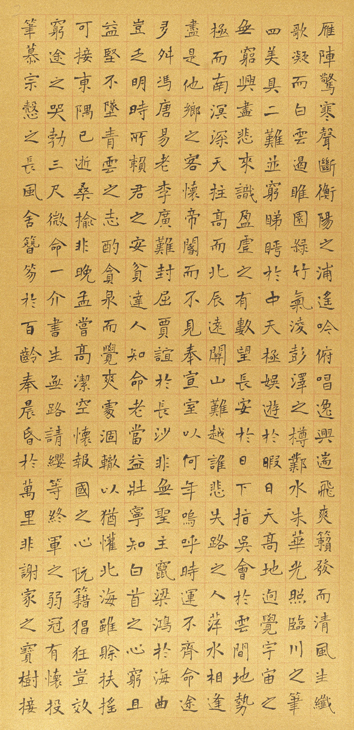 雁陣驚寒聲斷衡陽之浦遙吟俯唱逸興遄飛爽籟發而清風生纖
歌凝而白雲遏睢園綠竹氣凌彭澤之樽鄴水朱華光照臨川之筆
四美具二難並窮睇眄於中天極娛遊於暇日天高地迥覺宇宙之
無窮興盡悲來識盈虛之有數望長安於日下指吳會於雲間地勢
極而南溟深天柱高而北辰遠關山難越誰悲失路之人萍水相逢
盡是他鄉之客懷帝閽而不見奉宣室以何年嗚呼時運不齊命途
多舛馮唐易老李廣難封屈賈誼於長沙非無聖主竄梁鴻於海曲
豈乏明時所賴君之安貧達人知命老當益壯寧知白首之心窮且
益堅不墜青雲之志酌貪泉而覺爽處涸轍以猶懽北海雖賒扶搖
可接東隅已逝桑榆非晚孟嘗高潔空懷報國之心阮籍猖狂豈效
窮途之哭勃三尺微命一介書生無路請纓等終軍之弱冠有懷投
筆慕宗愨之長風舍簪笏於百齡奉晨昏於萬里非謝家之寶樹接